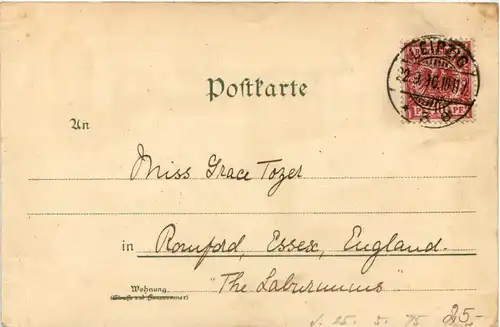 LEIPZIG
Postkarte
PF
An
Miss Grace Tozer
in Romford, Essex, England.
Wohnung
"The Laburnums"
(Straße und Hausnummer)
25,-